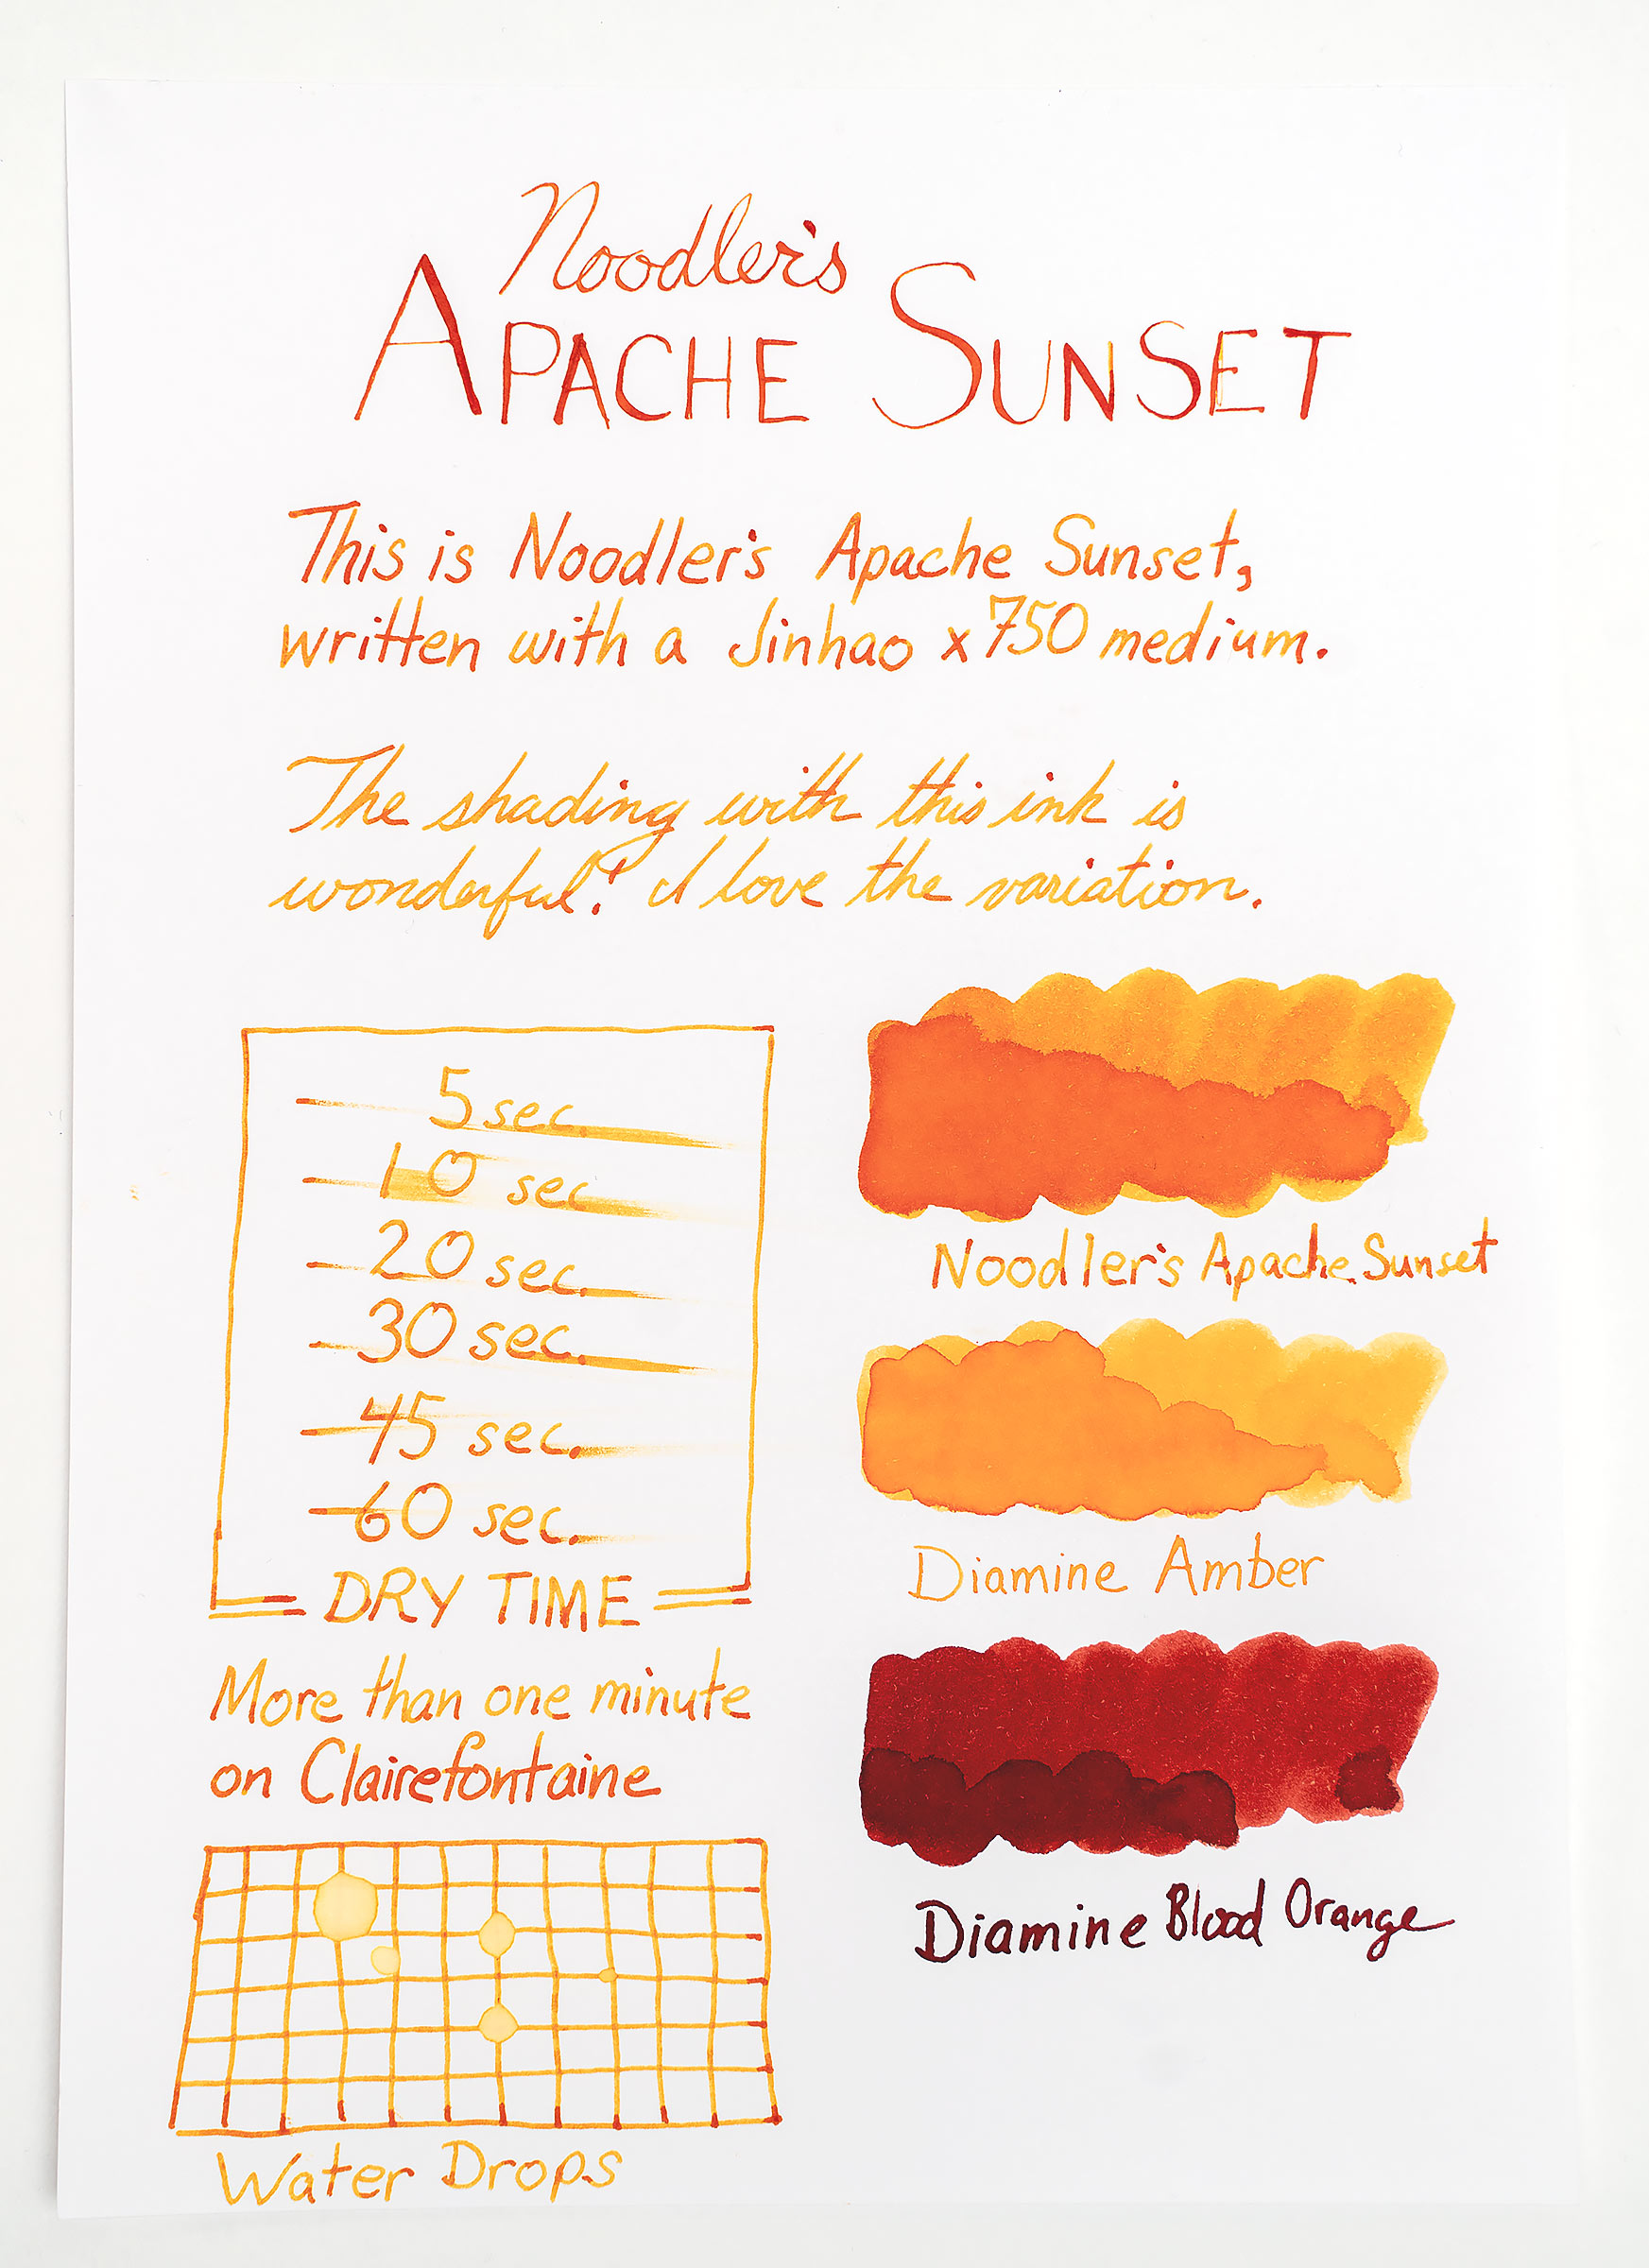 Noodler's
APACHE SUNSET
This is Noodler's Apache Sunset,
written with a Jinhao x750 medium.
The shading with this ink is
wonderful! I love the variation.
5 sec.
10 sec
20 sec.
30 sec.
45 sec.
60 sec.
DRY TIME
More than one minute
on Clairefontaine
Water Drops
Noodler's Apache Sunset
Diamine Amber
Diamine Blood Orange